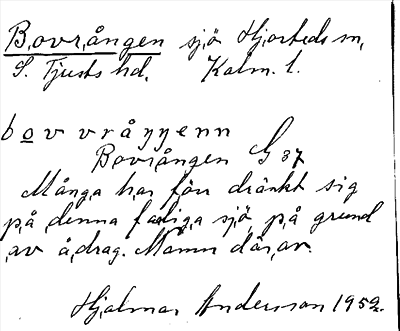 Bovrången sjö Hjorteds sn,
S. Tjusts hd, Kalm. l.
bovvråŋŋenn
Bovrången G 37
Många har förr dränkt sig
på denna farliga sjö på grund
av ådrag. Namn därav.
Hjalmar Andersson 1952.